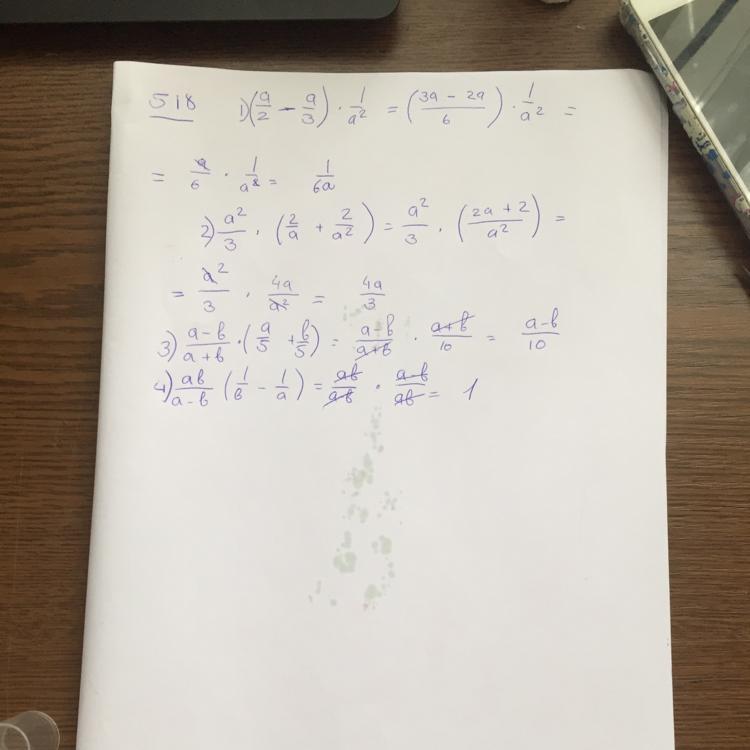 518 1) (a/2 - a/3) · 1/a² = ((3a - 2a)/6) · 1/a² =
= a/6 · 1/a² = 1/6a
2) a²/3 · (2/a + 2/a²) = a²/3 · ((2a + 2)/a²) =
= a²/3 · 4a/a² = 4a/3
3) (a-b)/(a+b) · (a/5 + b/5) = (a-b)/(a+b) · (a+b)/10 = (a-b)/10
4) ab/(a-b) (1/b - 1/a) = ab/ab · (a-b)/ab = 1